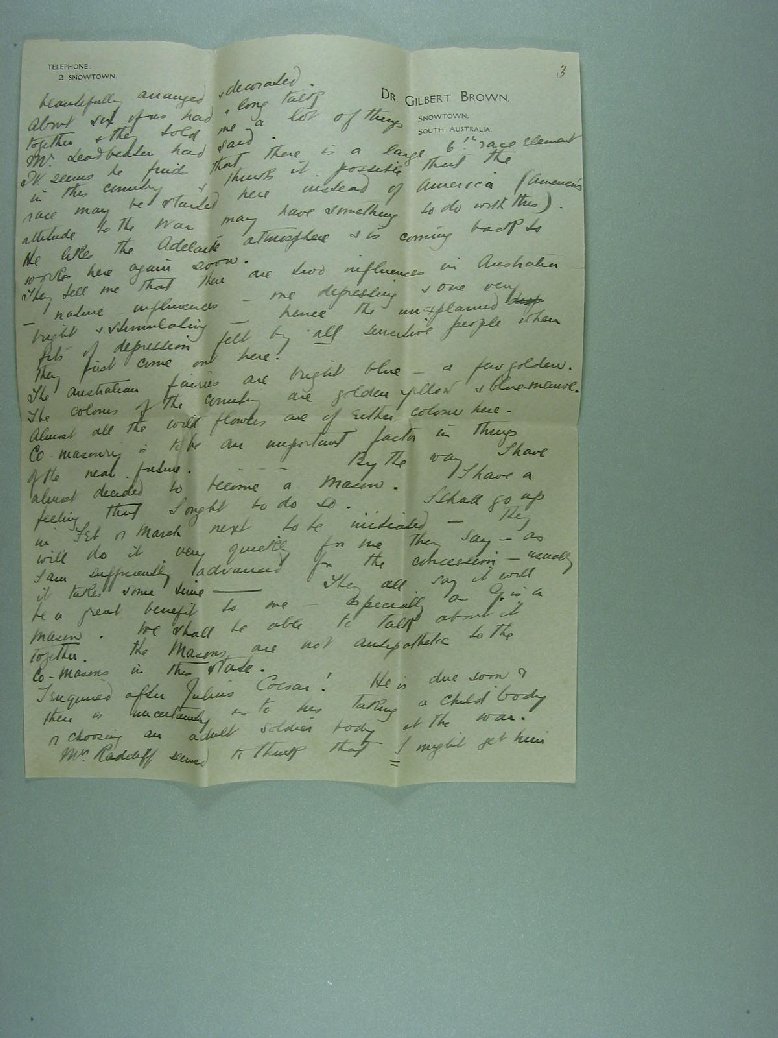 TELEPHONE:
2 SNOWTOWN.
3
DR GILBERT BROWN,
SNOWTOWN,
SOUTH AUSTRALIA.
beautifully arranged & decorated.
About six of us had a long talk
together & they told me a lot of things
Mr. Leadbeater had said.
It seems he finds that there is a large 6th race element
in this country & thinks it possible that the
race may be started here instead of America (America's
attitude to the War may have something to do with this).
He likes the Adelaide atmosphere & is coming back to
work here again soon.
They tell me that there are two influences in Australia
– nature influences – one depressing & one very
bright & stimulating – hence the unexplained
fits of depression felt by all sensitive people when
they first come out here!
The Australian fairies are bright blue – a few golden.
The colours of the country are golden yellow & blue-mauve.
Almost all the wild flowers are of either colour here –
Co-masonry is to be an important factor in things
of the near future.
By the way I have
almost decided to become a Mason. I have a
feeling that I ought to do so. I shall go up
in Feb or March next to be initiated – They
will do it very quickly for me they say – as
I am sufficiently advanced for the concession – usually
it takes some time — They all say it will
be a great benefit to me – especially as J. is a
Mason. We shall be able to talk about it
together. The Masons are not antipathetic to the
Co-masons in this state.
I enquired after Julius Caesar! He is due soon &
there is uncertainty as to his taking a child body
or choosing an adult soldier body at the war.
Mr. Radcliff seemed to think that I might get him